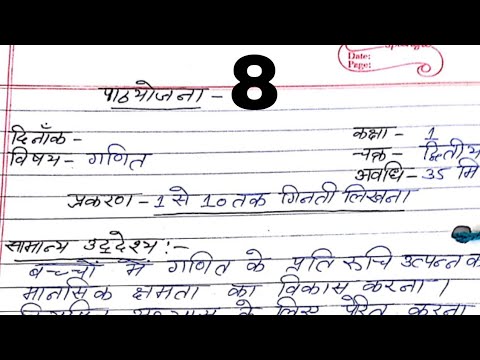 Date:
Page:
पाठयोजना - 8
दिनाँक - कक्षा - 1
विषय - गणित चक्र - द्वितीय
अवधि - 35 मि
प्रकरण - 1 से 10 तक गिनती लिखना
सामान्य उद्देश्य :-
बच्चों में गणित के प्रति रुचि उत्पन्न क
मानसिक क्षमता का विकास करना ।
के लिए प्रेरित करना